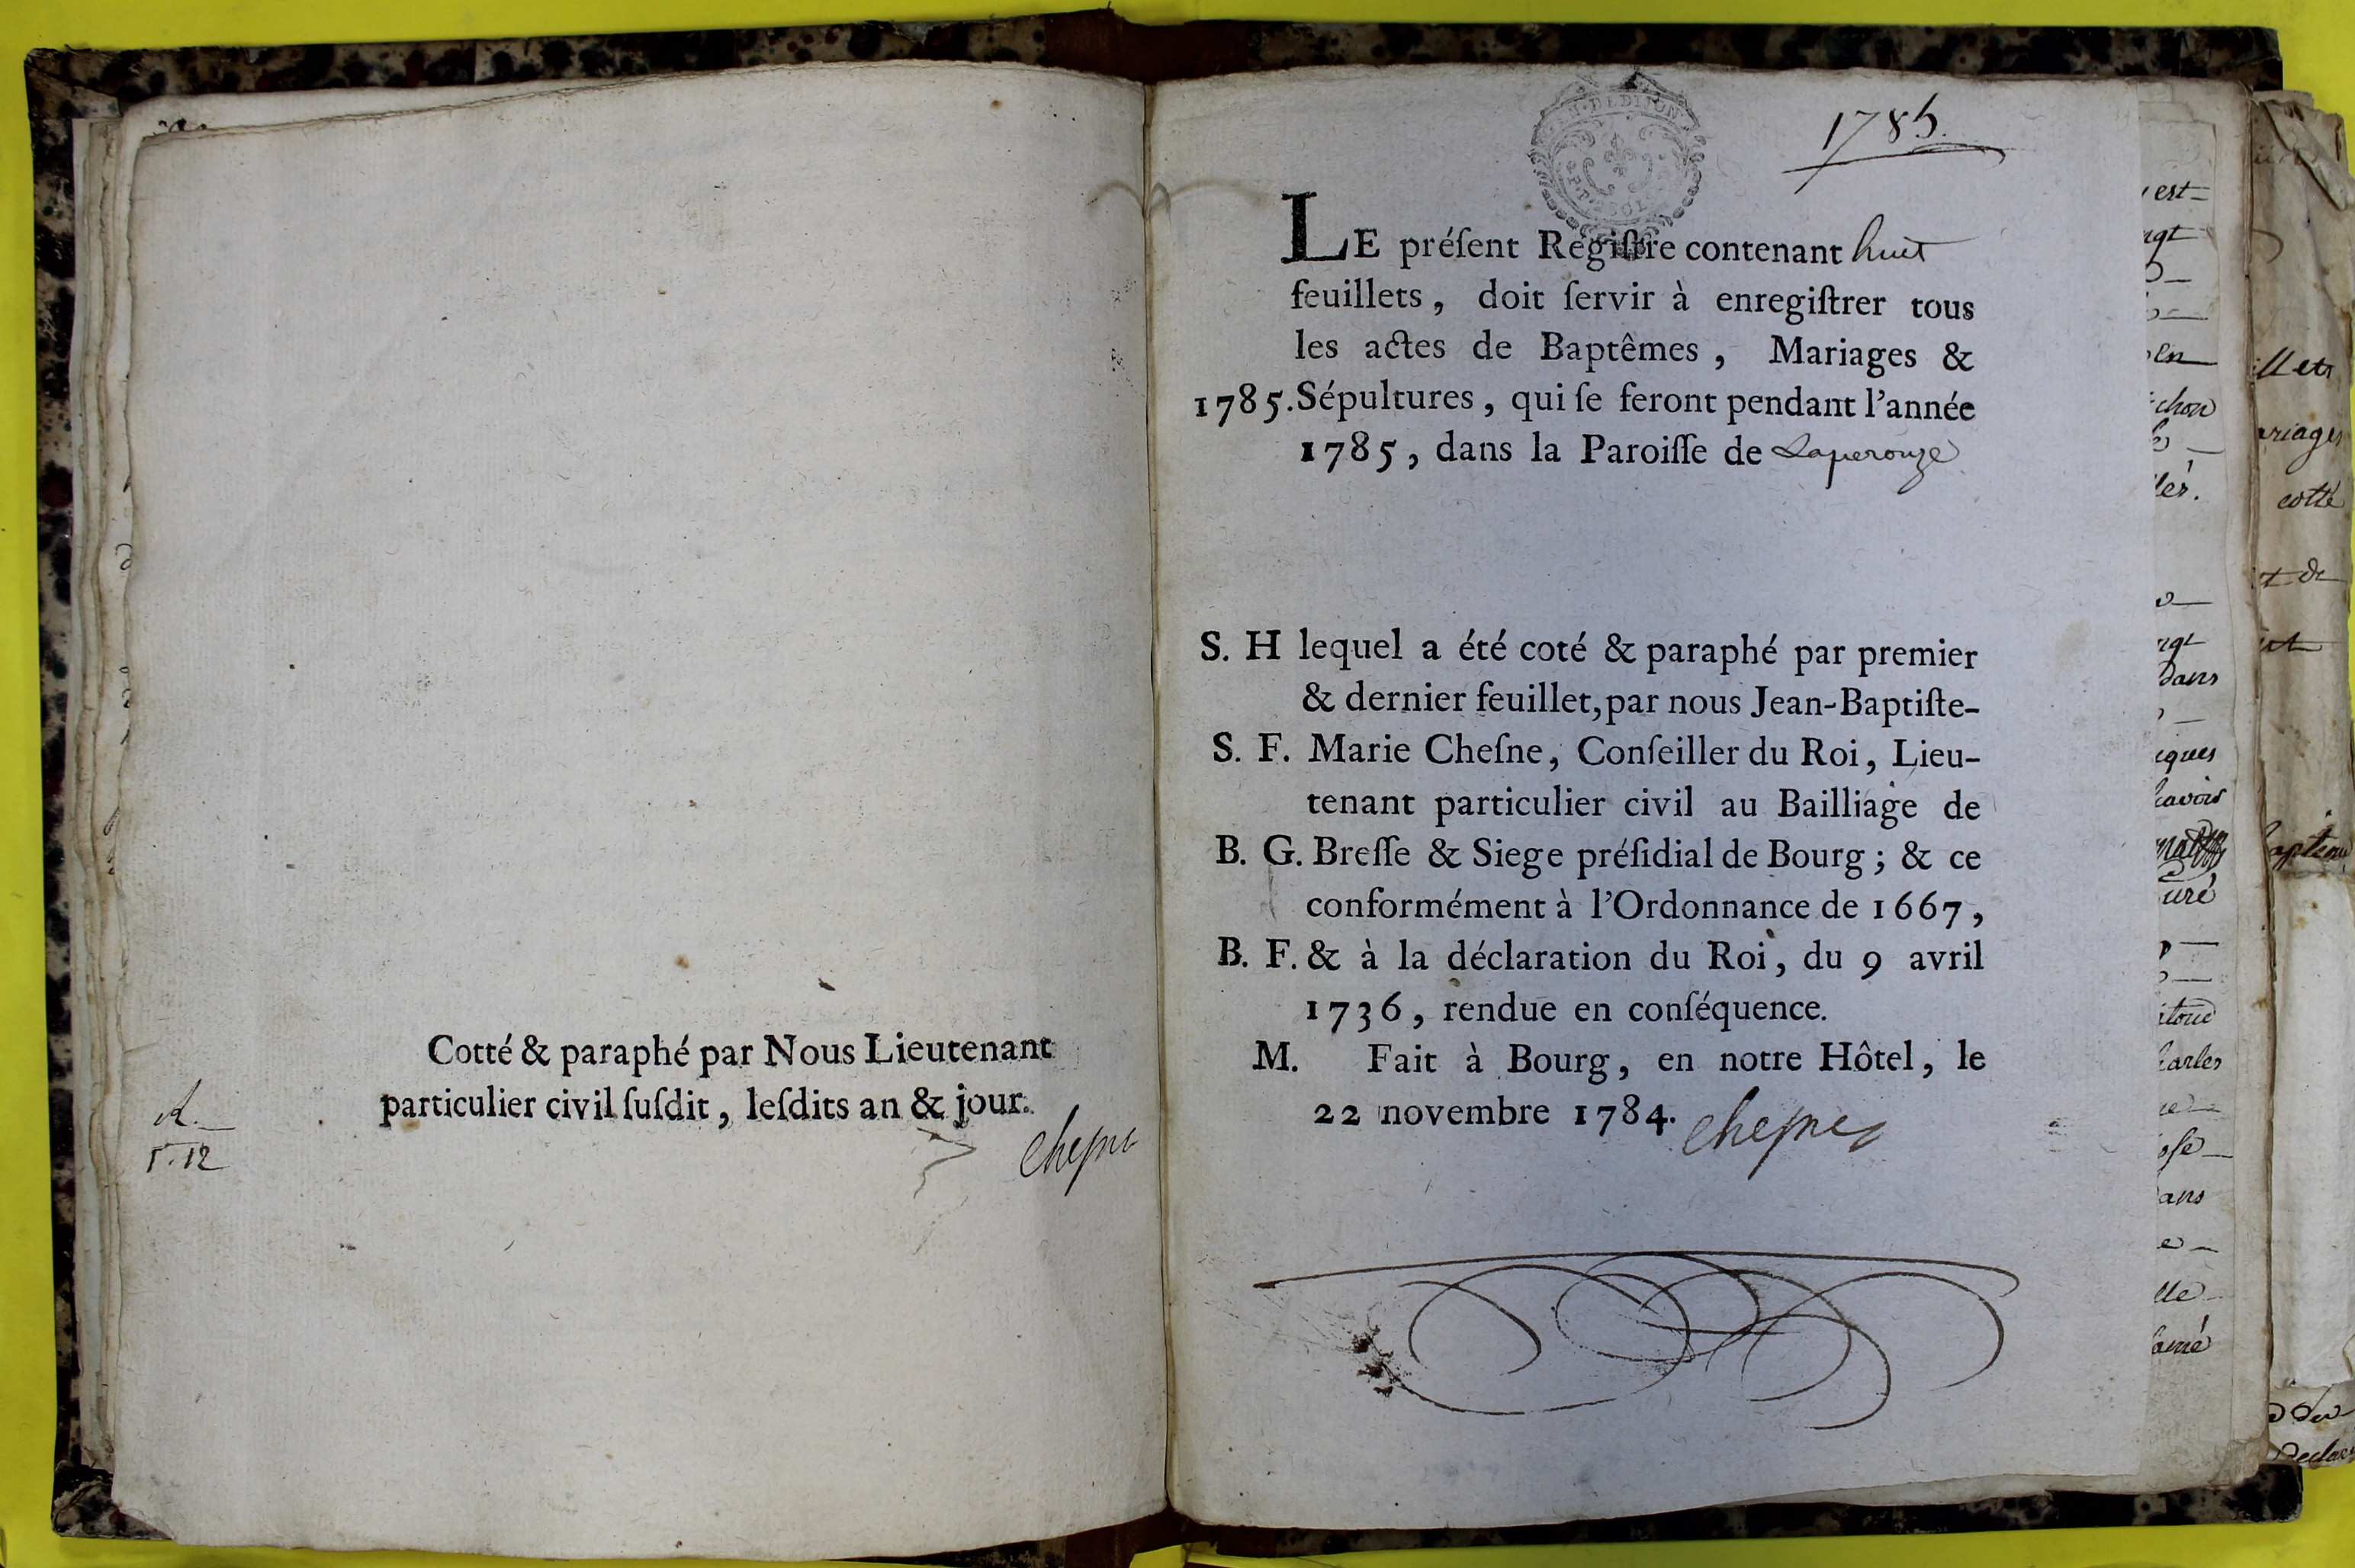 Cotté & paraphé par Nous Lieutenant
particulier civil ſuſdit, leſdits an & jour.
Cheſne
5.12
1785.
LE préſent Regiſtre contenant huit
feuillets, doit ſervir à enregiſtrer tous
les actes de Baptêmes, Mariages &
1785. Sépultures, qui ſe feront pendant l'année
1785, dans la Paroiſſe de Laperouze
S. H lequel a été coté & paraphé par premier
& dernier feuillet, par nous Jean-Baptiſte-
S. F. Marie Cheſne, Conſeiller du Roi, Lieu-
tenant particulier civil au Bailliage de
B. G. Breſſe & Siege préſidial de Bourg; & ce
conformément à l'Ordonnance de 1667,
B. F. & à la déclaration du Roi, du 9 avril
1736, rendue en conſéquence.
M. Fait à Bourg, en notre Hôtel, le
22 novembre 1784. Cheſne
est
dans
uré
ans
riages
cotté